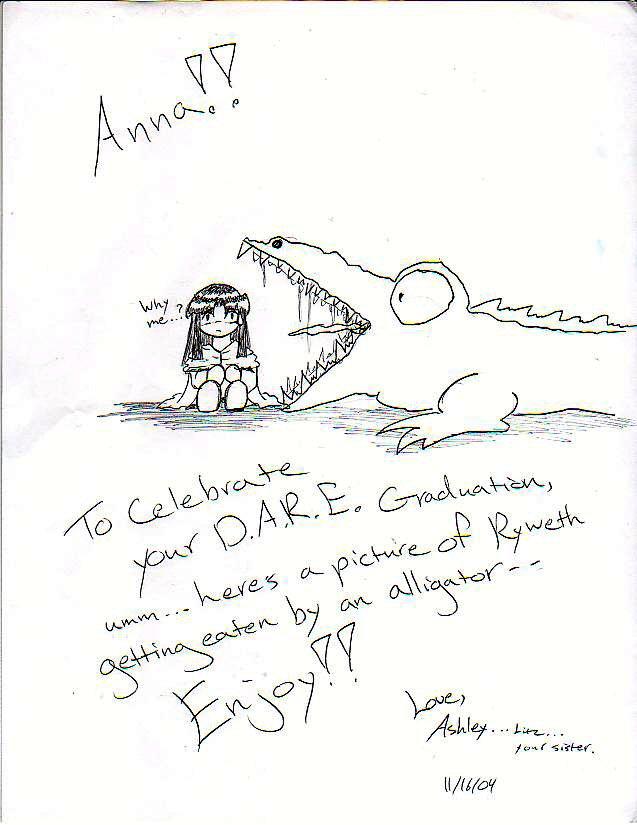 Anna!!
Why
me...?
To Celebrate
your D.A.R.E. Graduation,
umm... here's a picture of Ryweth
getting eaten by an alligator--
Enjoy!!
Love,
Ashley...
your sister.
11/16/04